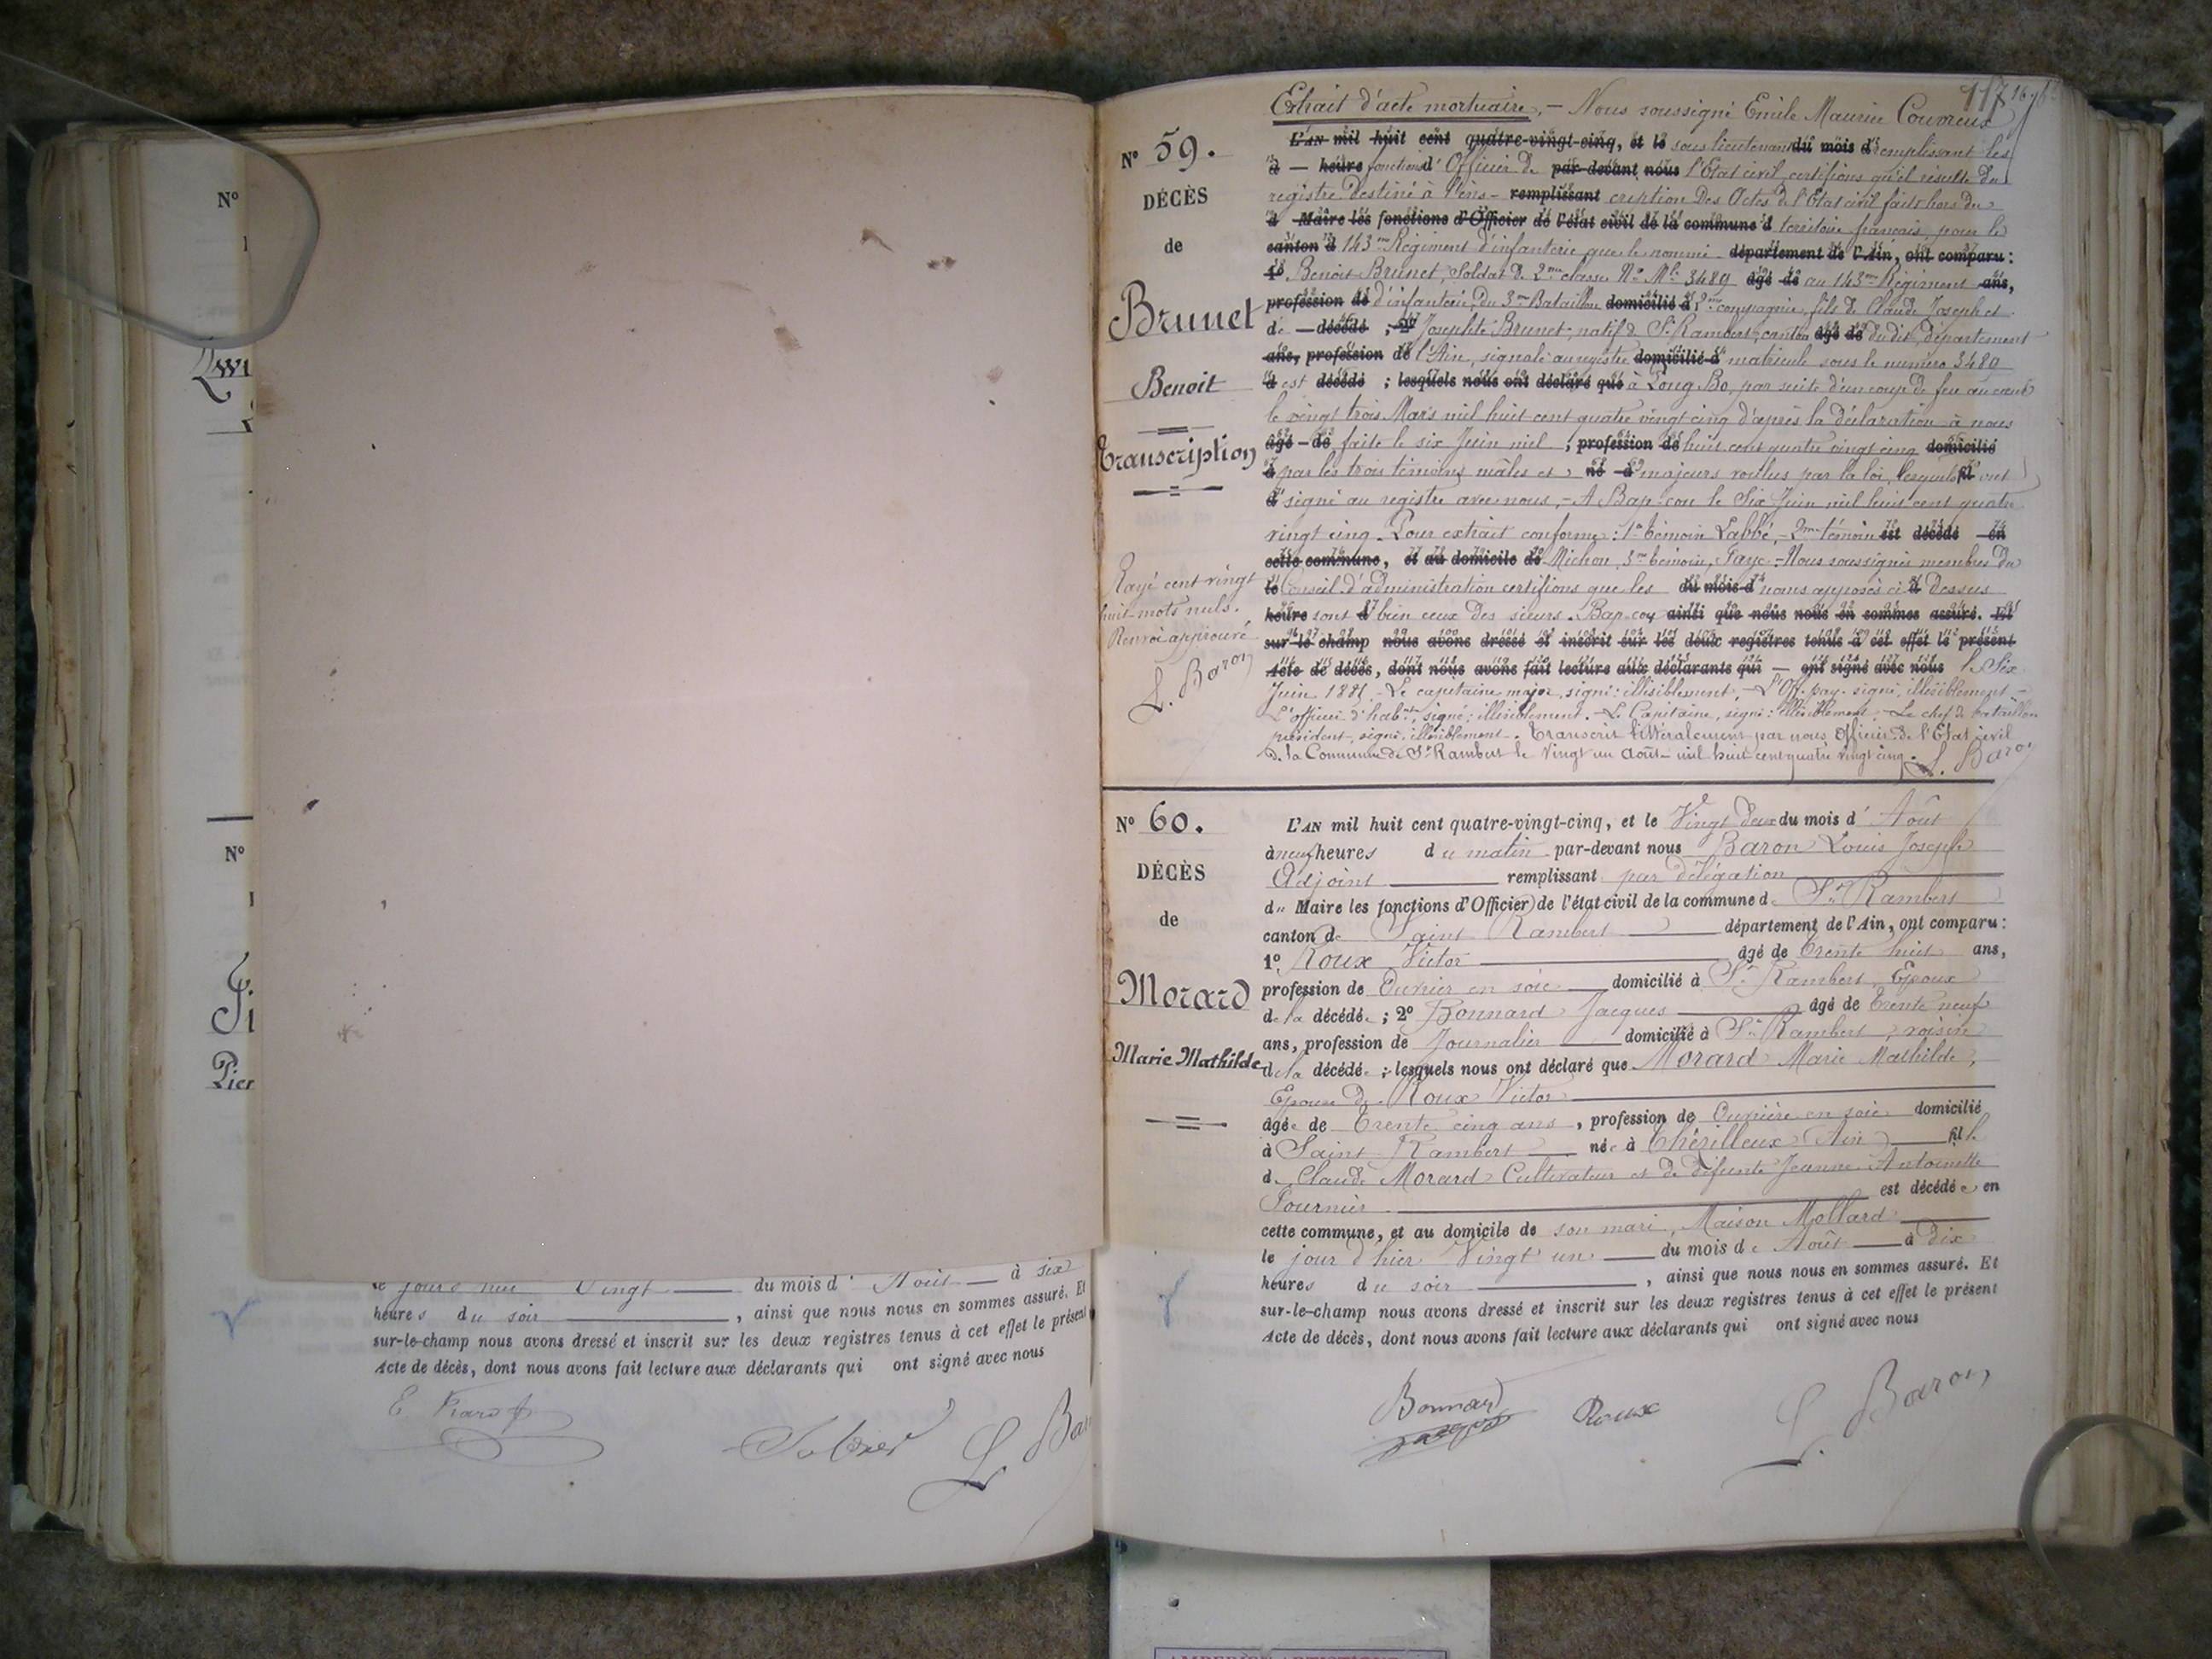 Nº
Nº
le jour d'hier Vingt du mois d' Août à six
heures du soir , ainsi que nous nous en sommes assuré. Et
sur-le-champ nous avons dressé et inscrit sur les deux registres tenus à cet effet le présent
Acte de décès, dont nous avons fait lecture aux déclarants qui ont signé avec nous
117
Nº 59.
DÉCÈS
de
Brunet
Benoit
Transcription
Rayé cent vingt
huit mots nuls.
Renvoi approuvé
L. Baron
Extrait d'acte mortuaire. — Nous soussigné Emile Maurice Couvreux
L'AN mil huit cent quatre-vingt-cinq, et le sous lieutenant du mois d remplissant les
à — heure fonctions d' Officier de par-devant nous l'Etat civil, certifions qu'il résulte du
registre destiné à l'ins- remplissant cription des Actes de l'Etat civil faits hors du
d Maire les fonctions d'Officier de l'état civil de la commune d territoire français, pour le
canton d 143me Régiment d'infanterie que le nommé département de l'Ain, ont comparu :
1º Benoit Brunet, Soldat de 2me classe Nº Mle 3489 âgé de au 143me Régiment ans,
profession de d'infanterie, du 3me Bataillon domicilié à 2me compagnie, fils de Claude Joseph et
de — décédé ; 2º Josephte Brunet, natif de St Rambert, canton âgé de dudit, département
ans, profession de l'Ain, signalé au registre domicilié à matricule sous le numéro 3489
d est décédé ; lesquels nous ont déclaré que à Long Bo, par suite d'un coup de feu au cœur
le vingt trois Mars mil huit cent quatre vingt cinq d'après la déclaration à nous
âgé — de faite le six Juin mil ; profession de huit cent quatre vingt cinq domicilié
à par les trois témoins mâles et né à majeurs voulus par la loi, lesquels fil ont
d signé au registre avec nous, — A Bap-cou le Six Juin mil huit cent quatre
vingt cinq. Pour extrait conforme : 1er témoin Labbé, — 2me témoin est décédé en
cette commune, et au domicile de Michon, 3me témoin, Faye. — Nous soussignés membres du
le Conseil d'administration certifions que les du mois d noms apposés ci à dessus
heure sont d bien ceux des sieurs. Bap-cou ainsi que nous nous en sommes assuré. Et
sur-le-champ nous avons dressé et inscrit sur les deux registres tenus à cet effet le présent
Acte de décès, dont nous avons fait lecture aux déclarants qui — ont signé avec nous le Six
Juin 1885. — Le capitaine major, signé : illisiblement. — L'Off. pay. signé, illisiblement —
L'officier d'habnt, signé : illisiblement. — Le Capitaine, signé : illisiblement. — Le chef de bataillon
président, signé, illisiblement. Transcrit littéralement par nous Officier de l'Etat civil
de la Commune de St Rambert le vingt un Août mil huit cent quatre vingt cinq. L. Baron
Nº 60.
DÉCÈS
de
Morard
Marie Mathilde
L'AN mil huit cent quatre-vingt-cinq, et le Vingt deux du mois d' Août
à neuf heures du matin par-devant nous Baron Louis Joseph
Adjoint remplissant par délégation
du Maire les fonctions d'Officier de l'état civil de la commune de St Rambert
canton de Saint Rambert département de l'Ain, ont comparu :
1º Roux Victor âgé de trente huit ans,
profession de Ouvrier en soie domicilié à St Rambert, Epoux
de la décédée ; 2º Bonnard Jacques âgé de trente neuf
ans, profession de Journalier domicilié à St Rambert, voisin
de la décédée ; lesquels nous ont déclaré que Morard Marie Mathilde,
Epouse de Roux Victor
âgée de trente cinq ans , profession de Ouvrière en soie domicilié
à Saint Rambert née à Chézilleux (Ain) fille
de Claude Morard Cultivateur et de défunte Jeanne Antoinette
Fournier est décédée en
cette commune, et au domicile de son mari, Maison Mollard
le jour d'hier Vingt un du mois de Août à dix
heures du soir , ainsi que nous nous en sommes assuré. Et
sur-le-champ nous avons dressé et inscrit sur les deux registres tenus à cet effet le présent
Acte de décès, dont nous avons fait lecture aux déclarants qui ont signé avec nous
Bonnard
Jacques
Roux
L. Baron